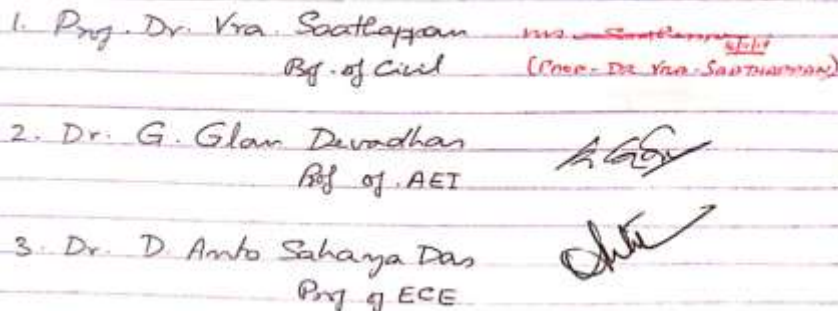 1. Prof. Dr. Vra. Saathappan
Prof. of Civil
(Prof. Dr Vra. SAATHAPPAN)
2. Dr. G. Glan Devadhas
Prof of. AEI
3. Dr. D. Anto Sahaya Das
Prof of ECE